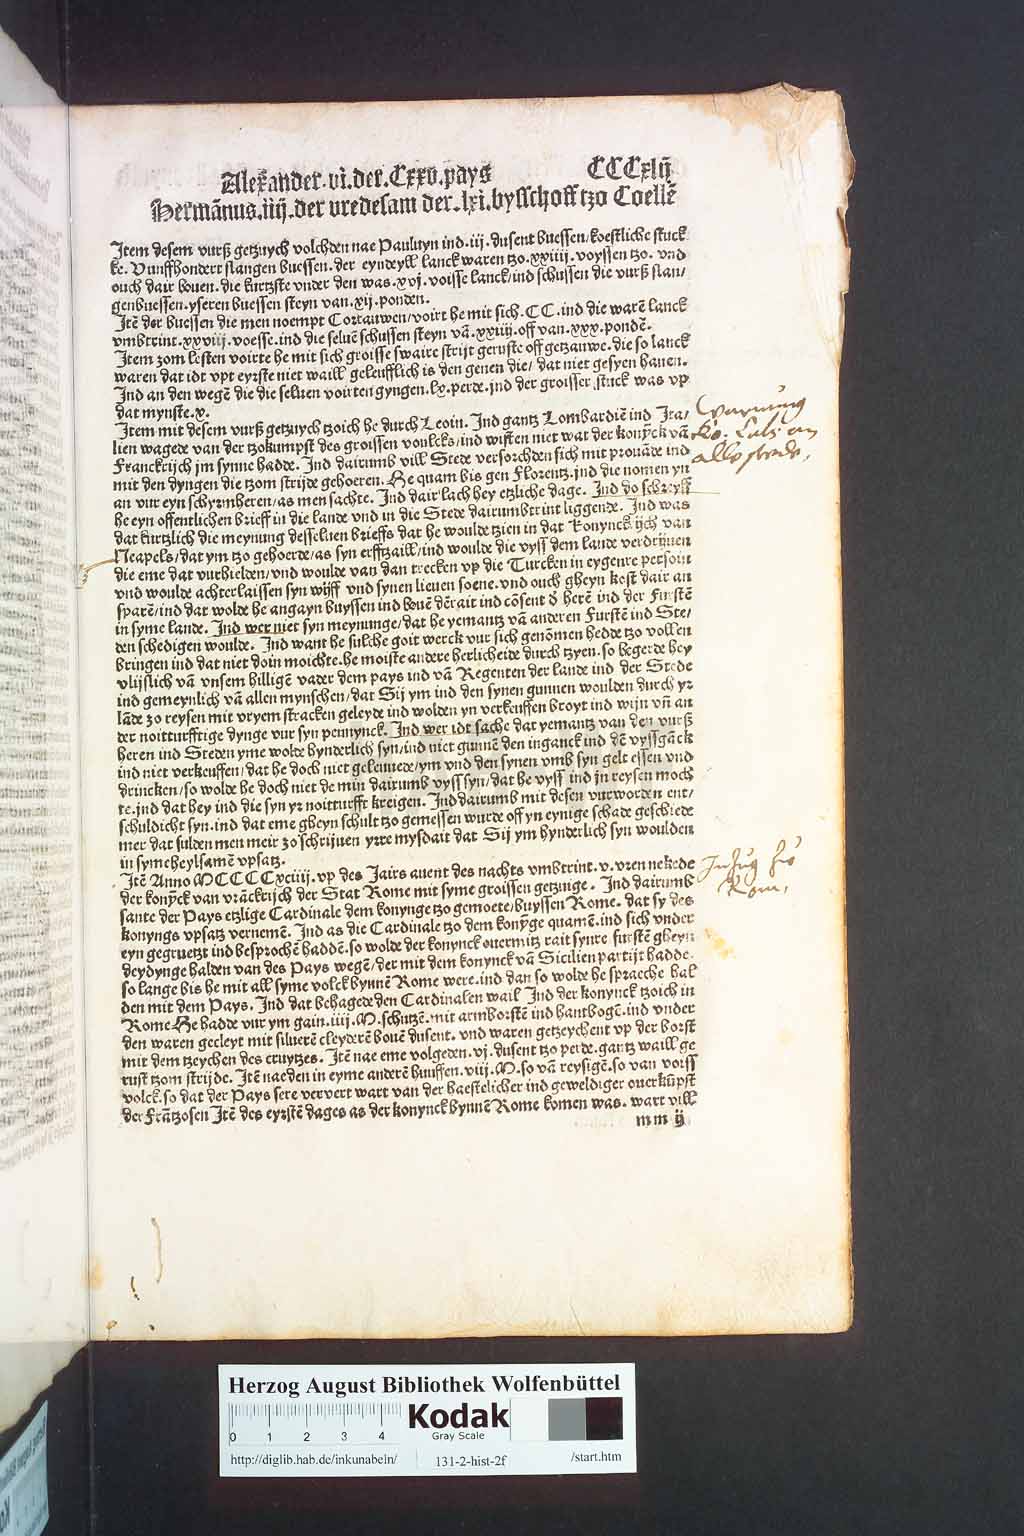 Alexander.vi.der.Cxxv.pays CCCxlij
Hermānus.iiij.der vredesam der.lxi.bysschoff tzo Coellē
Item desem vurß getzuych volchden nae Pauluyn ind.iij.dusent buessen/koestliche stuck
ke.Vunffhondert slangen buessen.der eyndeyll lanck waren tzo.xxiiij.voyssen tzo.vnd
ouch dair bouen.die kurtzste vnder den was.xvj.voisse lanck/ind schussen die vurß slan/
genbuessen.yseren buessen steyn van.xij.ponden.
Itē der buessen die men noempt Cortauwen/voirt he mit sich.CC.ind die warē lanck
vmbtrint.xxviij.voesse.ind die seluē schussen steyn vā.xxiiij.off van.xxx.pondē.
Item zom lesten voirte he mit sich groisse swaire strijt geruste off getzauwe.die so lanck
waren dat idt vpt eyrste niet waill geleufflich is den genen die/dat niet gesyen hauen.
Ind an den wegē die die seluen voirten gyngen.lx.perde.jnd der groisser stuck was vp
dat mynste.x.
Item mit desem vurß getzuych tzoich he durch Leoin. Ind gantz Lombardiē ind Ita/
lien wagede van der tzokumpst des groissen voulcks/ind wisten niet wat der konyck vā
Franckrijch jm synne hadde. Ind dairumb vill Stede versorchden sich mit prouāde ind
mit den dyngen die tzom strijde gehoeren. He quam bis gen Florentz.jnd die nomen yn
an vur eyn schyrmheren/as men sachte. Ind dair lach hey etzliche dage. Ind do schreyff
he eyn offentlichen brieff in die lande vnd in die Stede dairumbtrint liggende. Ind was
dat kurtzlich die meynung desseluen brieffs dat he woulde tzien in dat Konynckrijch van
Neapels/dat ym tzo gehoerde/as syn erfftzaill/ind woulde die vyss dem lande verdrijuen
die eme dat vurhielden/vnd woulde van dan trecken vp die Turcken in eygenre persoin
vnd woulde achterlaissen syn wijff vnd synen lieuen soene.vnd ouch gheyn kest dair an
sparē/ind dat wolde he angayn buyssen ind bouē dērait ind cōsent d herē ind der Furstē
in syme lande. Ind wer niet syn meynunge/dat he yemantz vā anderen Furstē ind Ste/
den schedigen woulde. Ind want he sulche goit werck vur sich genōmen hedde tzo vollen
bringen ind dat niet doin moichte.he moiste andere herlicheide durch tzyen.so begerde hey
vlijslich vā vnsem billigē vader dem pays ind vā Regenten der lande ind der Stede
ind gemeynlich vā allen mynschen/dat Sij ym ind den synen gunnen woulden durch yr
lāde zo reysen mit vryem stracken geleyde ind wolden yn verkeuffen broyt ind wijn vn̄ an
der noitturfftige dynge vur syn pennynck. Ind wer idt sache dat yemantz van den vurß
heren ind Steden yme wolde hynderlich syn/ind niet gunnē den inganck ind dē vyssgāck
ind niet verkeuffen/dat he doch niet geleuuede/ym vnd den synen vmb syn gelt essen vnd
drincken/so wolde he doch niet de min dairumb vyss syn/dat he vyss ind jn reysen moch
te.jnd dat hey ind die syn yr noitturfft kreigen. Ind dairumb mit desen vurworden ent/
schuldicht syn.ind dat eme gheyn schult tzo gemessen wurde off yn eynige schade geschiede
mer dat sulden men meir zo schrijuen yrre mysdait dat Sij ym hynderlich syn woulden
in syme heylsamē vpsatz.
Itē Anno MCCCCxciiij.vp des Jairs auent des nachts vmbtrint.v.vren nekede
der konyck van vrāckrijch der Stat Rome mit syme groissen getzuige. Ind dairumb
sante der Pays etzlige Cardinale dem konynge tzo gemoete/buyssen Rome. dat sy des
konyngs vpsatz vernemē. Ind as die Cardinale tzo dem konyge quamē.ind sich vnder
eyn gegruetzt ind besprochē haddē.so wolde der konynck ouermitz rait synre furstē gheyn
deydynge halden van des Pays wegē/der mit dem konynck vā Sicilien partijt hadde.
so lange bis he mit all syme volck bynnē Rome were.ind dan so wolde he spraeche hal
den mit dem Pays. Ind dat behagede den Cardinalen wail Ind der konynck tzoich in
Rome He hadde vur ym gain.iiij.M.schutzē.mit armborstē ind hantbogē.ind vnder
den waren gecleyt mit siluerē cleyderē bouē dusent. vnd waren getzeychent vp der borst
mit dem tzeychen des cruytzes. Itē nae eme volgeden.vj.dusent tzo perde.gantz waill ge
rust tzom strijde. Itē nae den in eyme anderē huuffen.viij.M.so vā reysigē.so van voiss
volck.so dat der Pays sere ververt wart van der haestelicher ind geweldiger ouerkūpst
der Frātzosen Itē des eyrstē dages as der konynck bynnē Rome komen was. wart vill
mm ij
Warnung
allo stede.
Inzug zu
Rom.
Herzog August Bibliothek Wolfenbüttel
0 1 2 3 4
Kodak
Gray Scale
http://diglib.hab.de/inkunabeln/ 131-2-hist-2f /start.htm